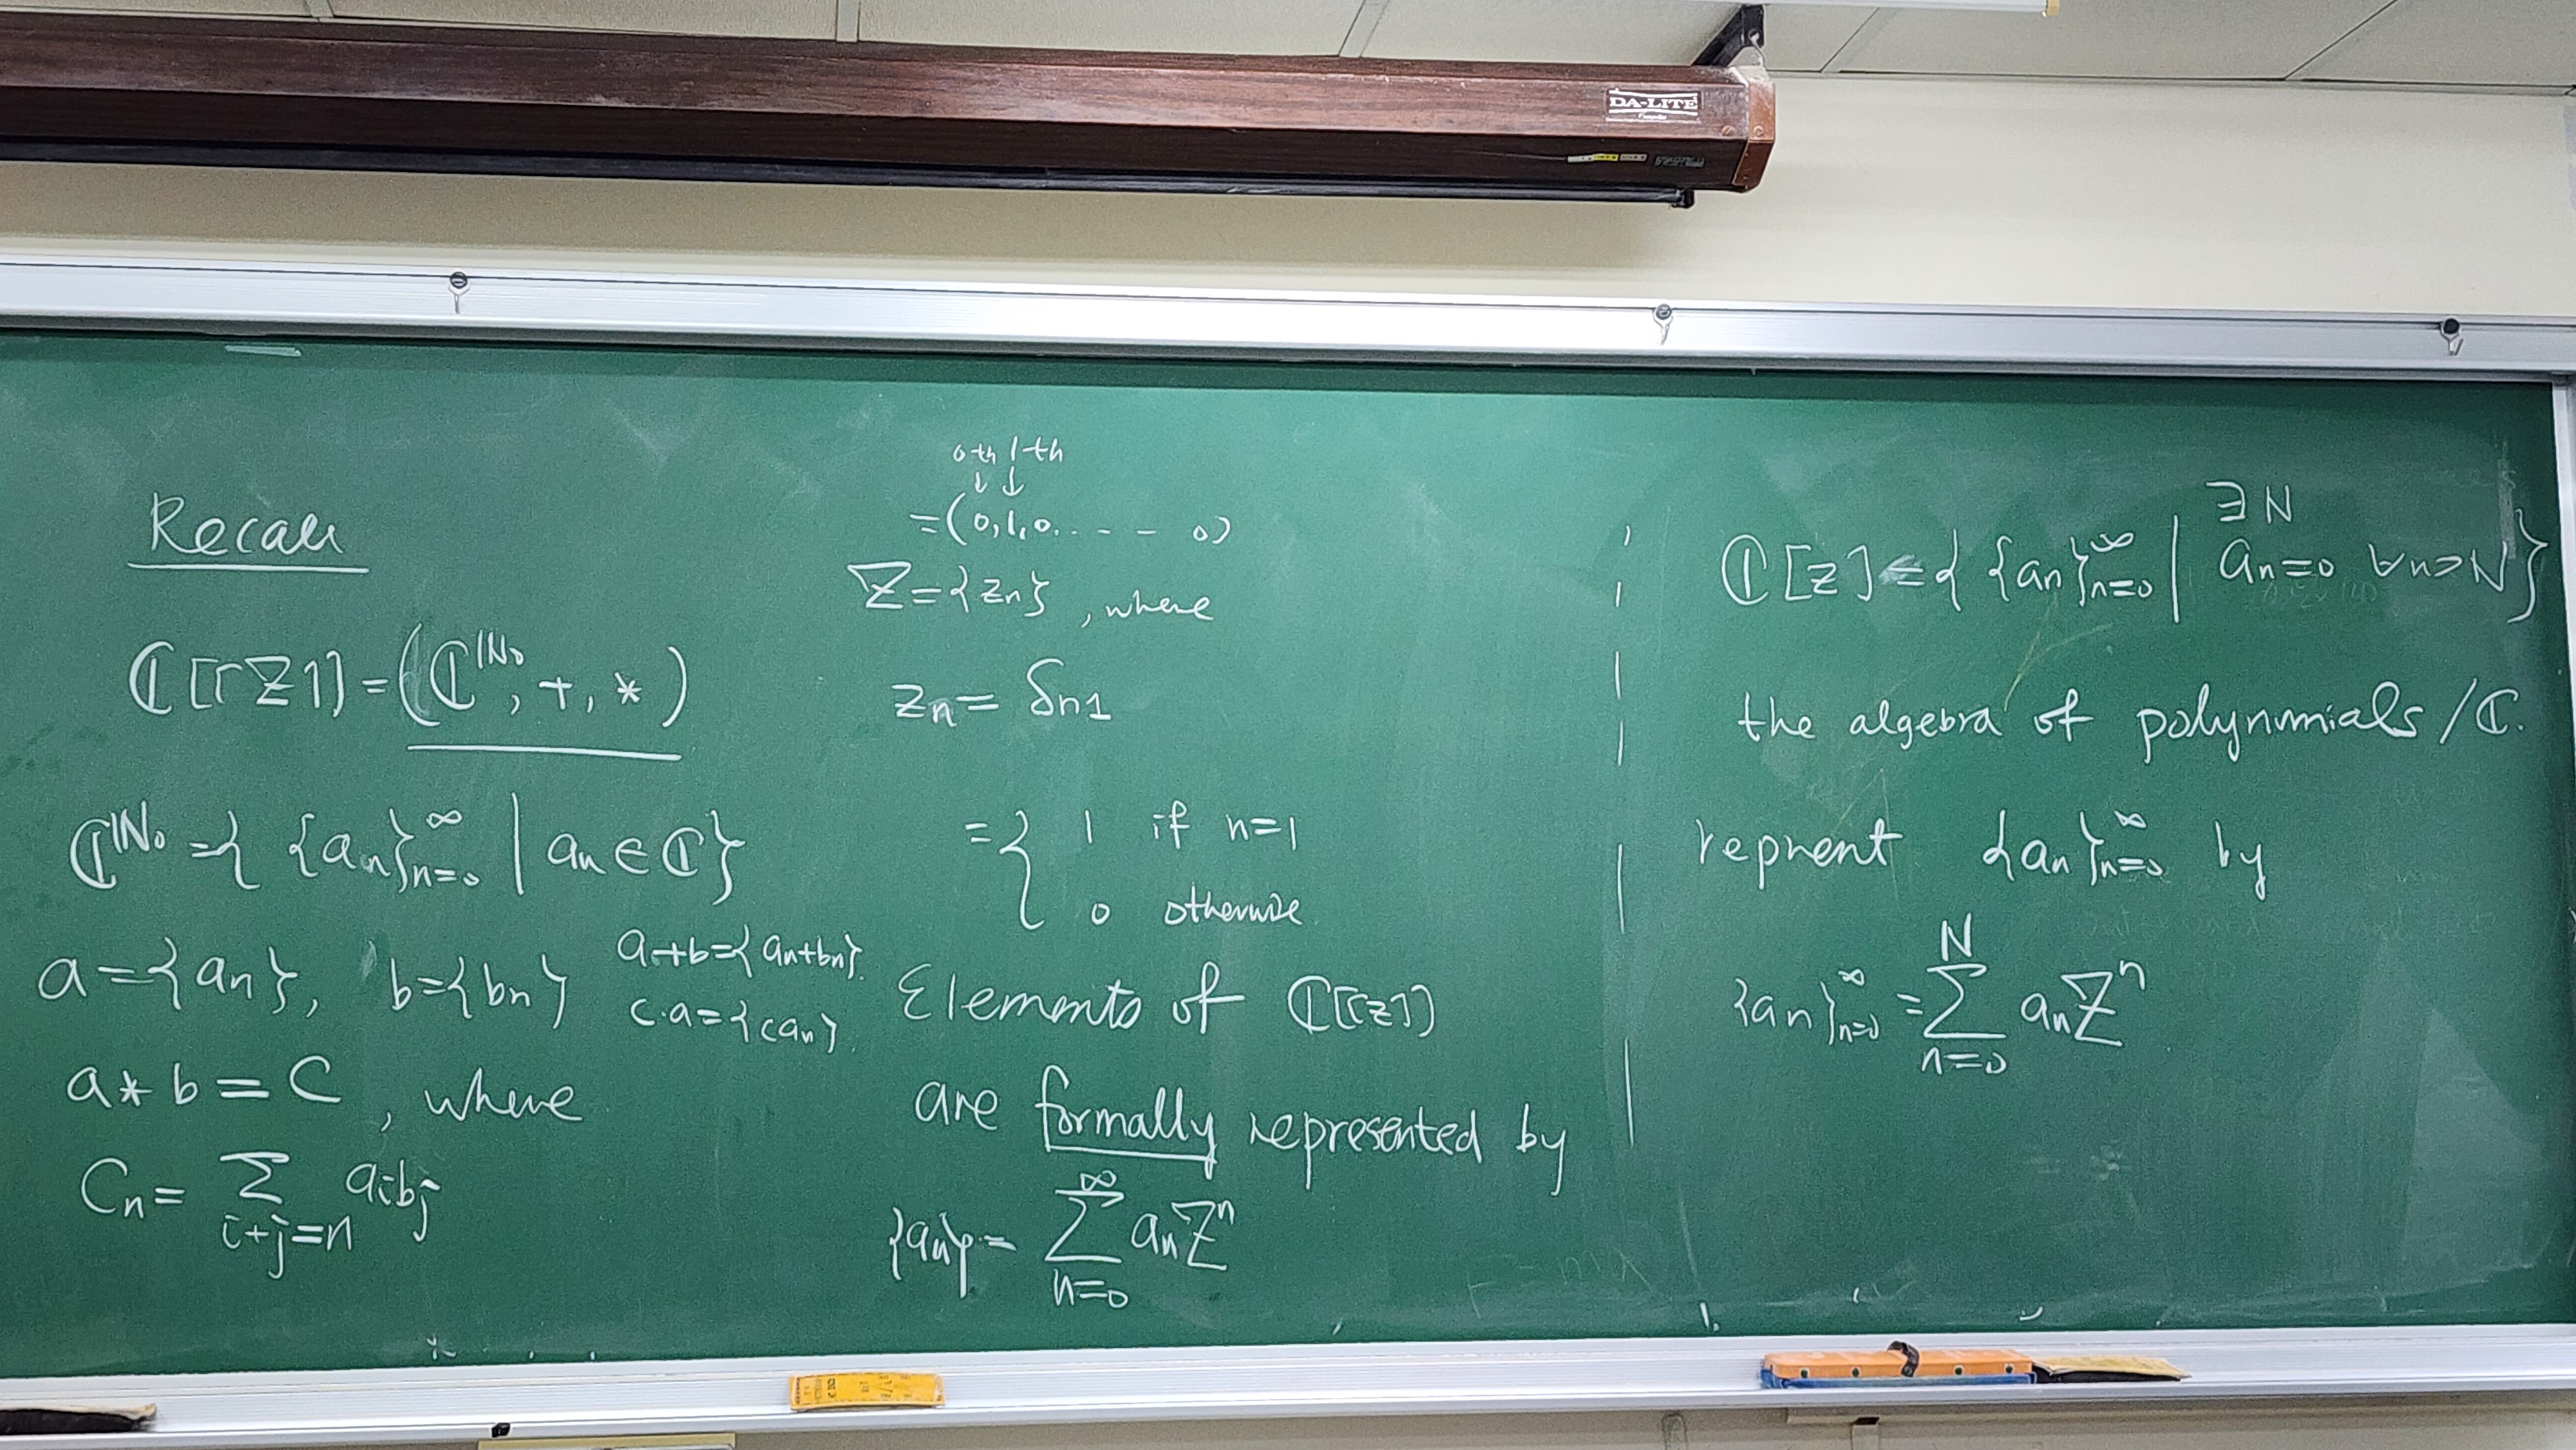 DA-LITE
Recall
ℂ[[Z]] = (ℂ^ℕ₀, +, *)
ℂ^ℕ₀ = { {aₙ}ₙ₌₀^∞ | aₙ ∈ ℂ}
a = {aₙ}, b = {bₙ}
a+b = {aₙ+bₙ}.
c·a = {caₙ}.
a * b = C, where
Cₙ = Σ_{i+j=n} aᵢbⱼ
0th 1th
↓ ↓
= (0,1,0. . - - 0)
Z = {zₙ}, where
zₙ = δₙ₁
= { 1 if n=1
0 otherwise.
Elements of ℂ[[z]]
are formally represented by
{aₙ} = Σ_{n=0}^∞ aₙZⁿ
∃ N
ℂ[z] = { {aₙ}ₙ₌₀^∞ | aₙ=0 ∀n>N}
the algebra of polynomials /ℂ.
reprent {aₙ}ₙ₌₀^∞ by
{aₙ}ₙ₌₀^∞ = Σ_{n=0}^N aₙZⁿ
F = ma